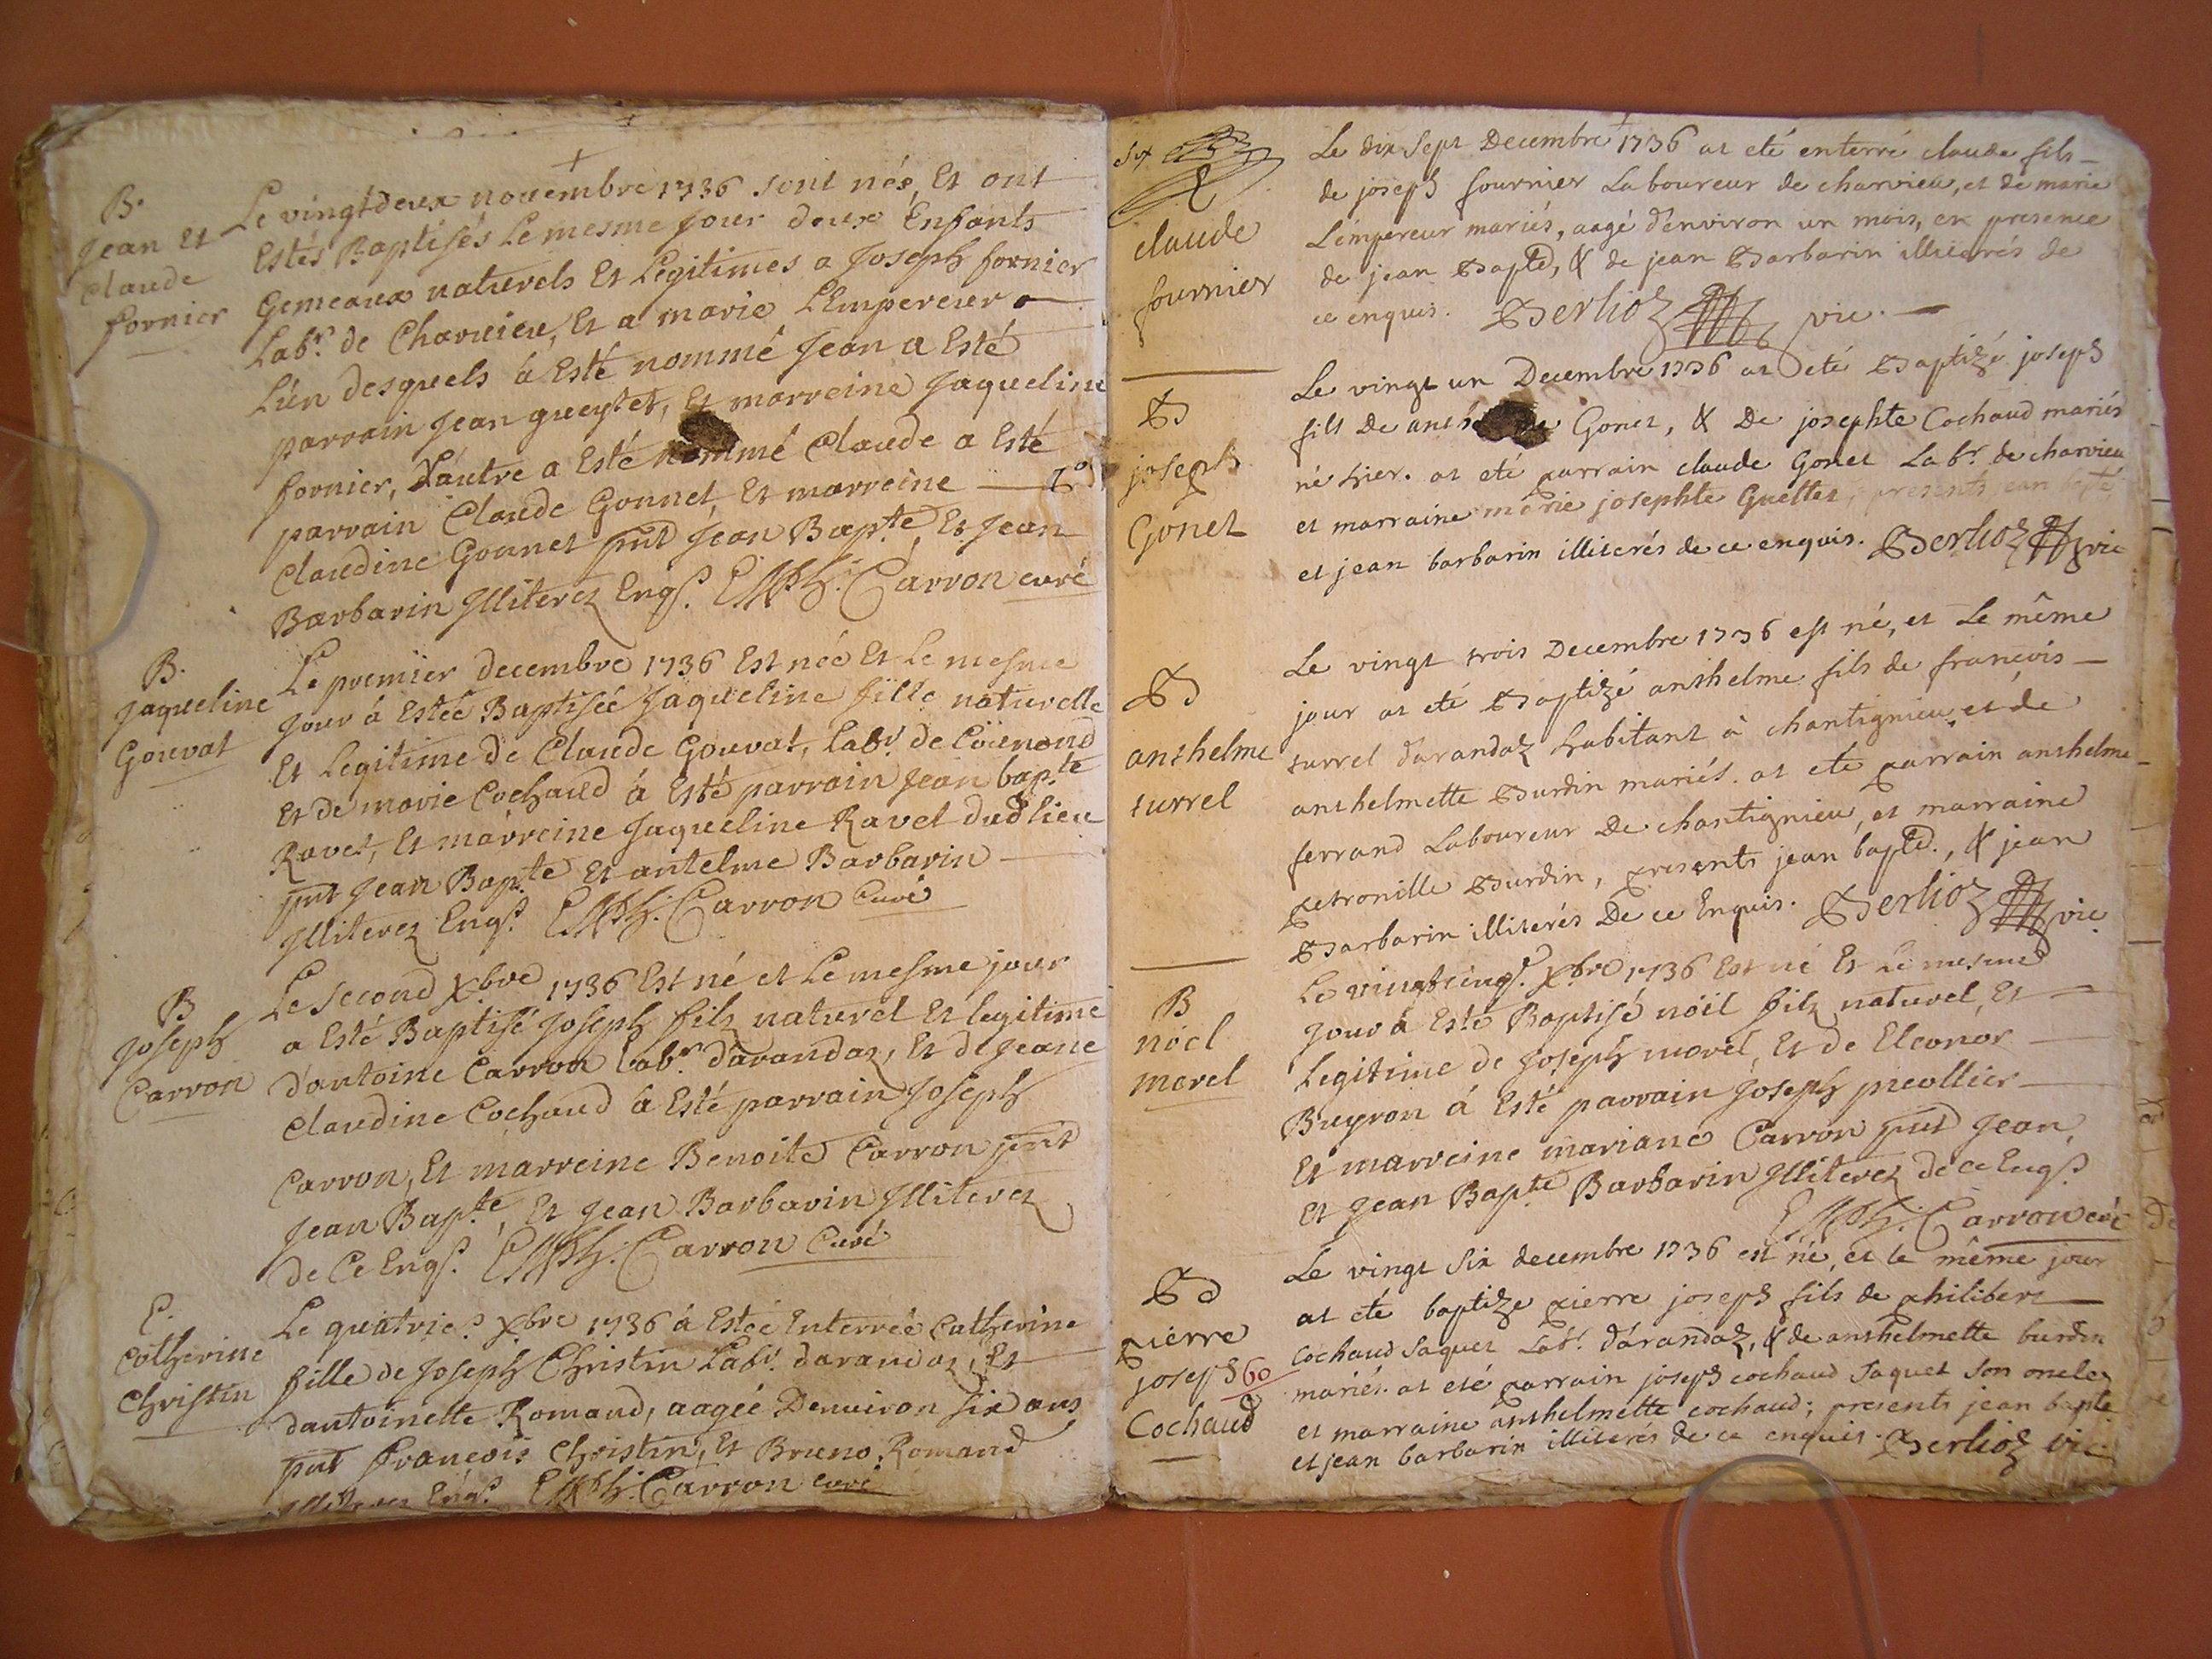 B.
Jean Et
Claude
fornier
Le vingtdeux novembre 1736 sont nés, Et ont
Estés Baptisés Le mesme jour deux Enfants
Gemeaux naturels Et Legitimes a Joseph fornier
Labr. de Charvieu, Et a marie LEmpereur
L'ún desquels á Esté nommé Jean a Esté
parrain Jean gueytet, Et marreine Jaqueline
fornier, L'autre a Esté nommé Claude a Esté
parrain Claude Gonnet, Et marreine
Claudine Gonnet pnt Jean Bapte, Et Jean
Barbarin Illiterez Enqs. Carron curé
B.
Jaqueline
Gouvat
Le premiier decembre 1736 Est née Et Le mesme
Jour á Estée Baptisée Jaqueline fille naturelle
Et Legitime de Claude Gouvat, Labr. de
Et de marie Cochaud á Esté parrain Jean bapte
Ravet, Et marreine Jaqueline Ravel dud lieu
pnt Jean Bapte Et antelme Barbarin
Illiterez Enqs. Carron Curé
B
Joseph
Carron
Le second Xbre 1736 Est né et Le mesme jour
a Esté Baptisé Joseph filz naturel Et legitime
d'antoine Carron Labr. d'arandaz, Et de Jeane
Claudine Cochaud á Esté parrain Joseph
Carron, Et marreine Benoite Carron pnt
Jean Bapte, Et Jean Barbarin Illiterez
de Ce Enqs. Carron Curé
E.
Catherine
Christin
Le quatrie. Xbre 1736 á Estée Enterrée Catherine
fille de Joseph Christin Labr. darandaz, Et
dantoinette Romand, aagée Denuiron six ans
pnt francois Christin, Et Bruno Romand
Illiterez Enqs. Carron curé
Six
E
claude
fournier
Le dix Sept Decembre 1736 at eté enterré claude fils
de joseph fournier Laboureur de charvieu, et de marie
L'émpereur mariés, aagé d'énviron un mois, en presence
de jean Bapte, & de jean Barbarin illiterés de
ce enquis. Berlioz vic.
B
joseph
Gonet
Le vingt un Decembre 1736 at eté Baptizé joseph
fils de Gonet, & De josephte Cochaud mariés
né hier. at eté parrain claude Gonet Labr. de charvieu
et marraine marie josephte Guettet, presents jean bapte,
et jean barbarin illiterés de ce enquis. Berlioz vic
B
anthelme
turrel
Le vingt trois Decembre 1736 est né, et Le même
jour at eté Baptizé anthelme fils de françois
turrel d'arandaz habitant à chantignieu et de
anthelmette Burdin mariés. at eté parrain anthelme
ferrand Laboureur De chantignieu, et marraine
petronille Burdin, presents jean bapte., & jean
Barbarin illiterés De ce Enquis. Berlioz vic.
B
nöel
morel
Le vingtcinqe. Xbre 1736 Est né Et Le mesme
Jour á Esté Baptisé nöel filz naturel, Et
Legitime de Joseph morel, Et de Eleonor
Buyron á Esté parrain Joseph
Et marreine mariane Carron pnt Jean,
Et Jean Bapte Barbarin Illiterez de ce Enqs.
Carron curé
B
pierre
joseph 60
Cochaud
Le vingt Six decembre 1736 est né, et le même jour
at eté baptize pierre joseph fils de philibert
Cochaud Saquet Labr. d'árandaz, & de anthelmette burdin
mariés. at eté parrain joseph cochaud Saquet Son oncle
et marraine anthelmette cochaud; presents jean bapte
et jean barbarin illiterés de ce enquis. Berlioz vic.